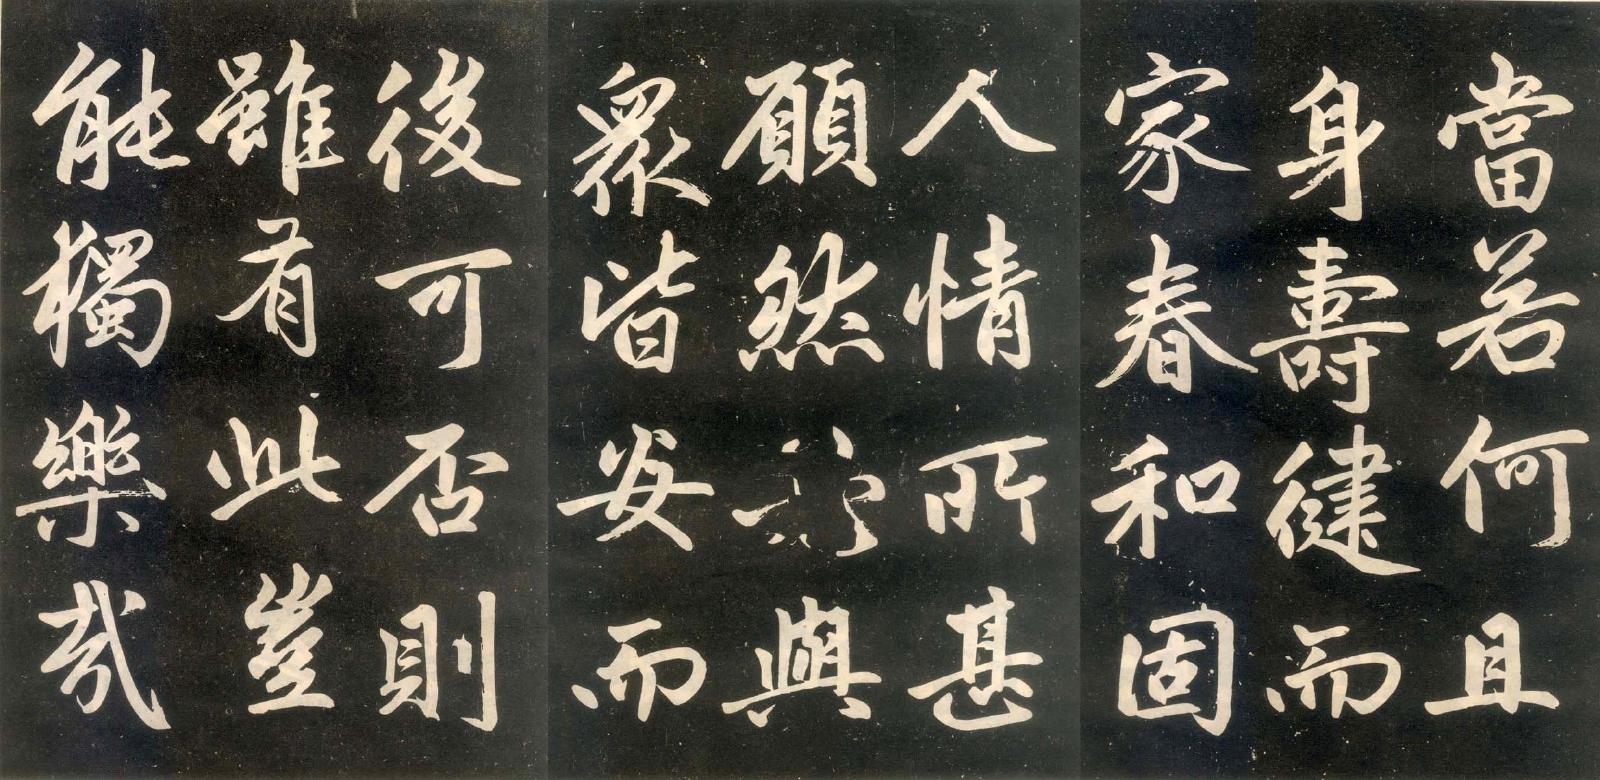 當若何且
身壽健而
家春和固
人情所甚
願然與
衆皆安而
後可否則
雖有此豈
能獨樂哉